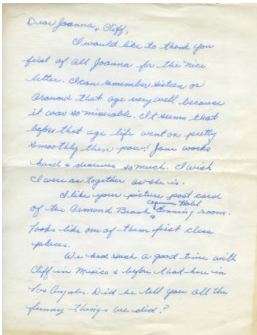 Dear Joanna & Cliff,
I would like to thank you
first of all Joanna for the nice
letter. I can remember sixteen or
around that age very well because
it was so miserable. It seems that
before that age life went on pretty
smoothly then pow! Jane works
hard & deserves so much. I wish
I were as together as she is.
I like your picture post card
of the Ormond Beach Hotel dining room.
Looks like one of them first class
places.
We had such a good time with
Cliff in Mexico & before that here in
Los Angeles. Did he tell you all the
funny things we did?